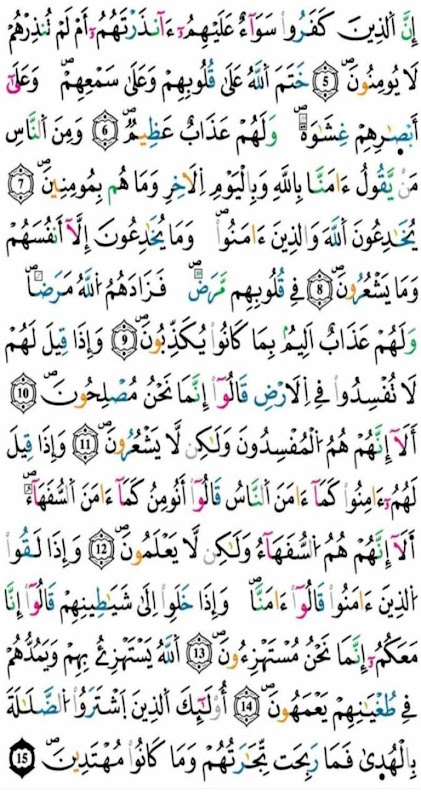 إِنَّ اَ۬لذِينَ كَفَرُواْ سَوَآءٌ عَلَيْهِمُۥٓ ءَآنذَرْتَهُمُۥٓ أَمْ لَمْ تُنذِرْهُمْ
لَا يُومِنُونَۖ 5 خَتَمَ اَ۬للَّهُ عَلَىٰ قُلُوبِهِمْ وَعَلَىٰ سَمْعِهِمْۖ وَعَلَىٰٓ
أَبْصَٰرِهِمْ غِشَٰوَةٌۖ وَلَهُمْ عَذَابٌ عَظِيمٌۖ 6 وَمِنَ اَ۬لنَّاسِ
مَنْ يَّقُولُ ءَامَنَّا بِاللَّهِ وَبِالْيَوْمِ اِ۬لَاخِرِ وَمَا هُم بِمُومِنِينَۖ 7
يُخَٰدِعُونَ اَ۬للَّهَ وَالذِينَ ءَامَنُواْۖ وَمَا يُخَٰدِعُونَ إِلَّآ أَنفُسَهُمْ
وَمَا يَشْعُرُونَۖ 8 فِي قُلُوبِهِم مَّرَضٌۖ فَزَادَهُمُ اُ۬للَّهُ مَرَضاٗۖ
وَلَهُمْ عَذَابٌ اَلِيمُۢ بِمَا كَانُواْ يُكَذِّبُونَۖ 9 وَإِذَا قِيلَ لَهُمْ
لَا تُفْسِدُواْ فِي اِ۬لَارْضِ قَالُوٓاْ إِنَّمَا نَحْنُ مُصْلِحُونَۖ 10
أَلَآ إِنَّهُمْ هُمُ اُ۬لْمُفْسِدُونَ وَلَٰكِن لَّا يَشْعُرُونَۖ 11 وَإِذَا قِيلَ
لَهُمُۥٓ ءَامِنُواْ كَمَآ ءَامَنَ اَ۬لنَّاسُ قَالُوٓاْ أَنُومِنُ كَمَآ ءَامَنَ اَ۬لسُّفَهَآءُۖ
أَلَآ إِنَّهُمْ هُمُ اُ۬لسُّفَهَآءُ وَلَٰكِن لَّا يَعْلَمُونَۖ 12 وَإِذَا لَقُواْ
اُ۬لذِينَ ءَامَنُواْ قَالُوٓاْ ءَامَنَّاۖ وَإِذَا خَلَوِاْ اِلَىٰ شَيَٰطِينِهِمْ قَالُوٓاْ إِنَّا
مَعَكُمُۥٓ إِنَّمَا نَحْنُ مُسْتَهْزِءُونَۖ 13 اَ۬للَّهُ يَسْتَهْزِئُ بِهِمْ وَيَمُدُّهُمْ
فِي طُغْيَٰنِهِمْ يَعْمَهُونَۖ 14 أُوْلَٰٓئِكَ اَ۬لذِينَ اَ۪شْتَرَوُاْ اُ۬لضَّلَٰلَةَ
بِالْهُدَىٰ فَمَا رَبِحَت تِّجَٰرَتُهُمْ وَمَا كَانُواْ مُهْتَدِينَۖ 15